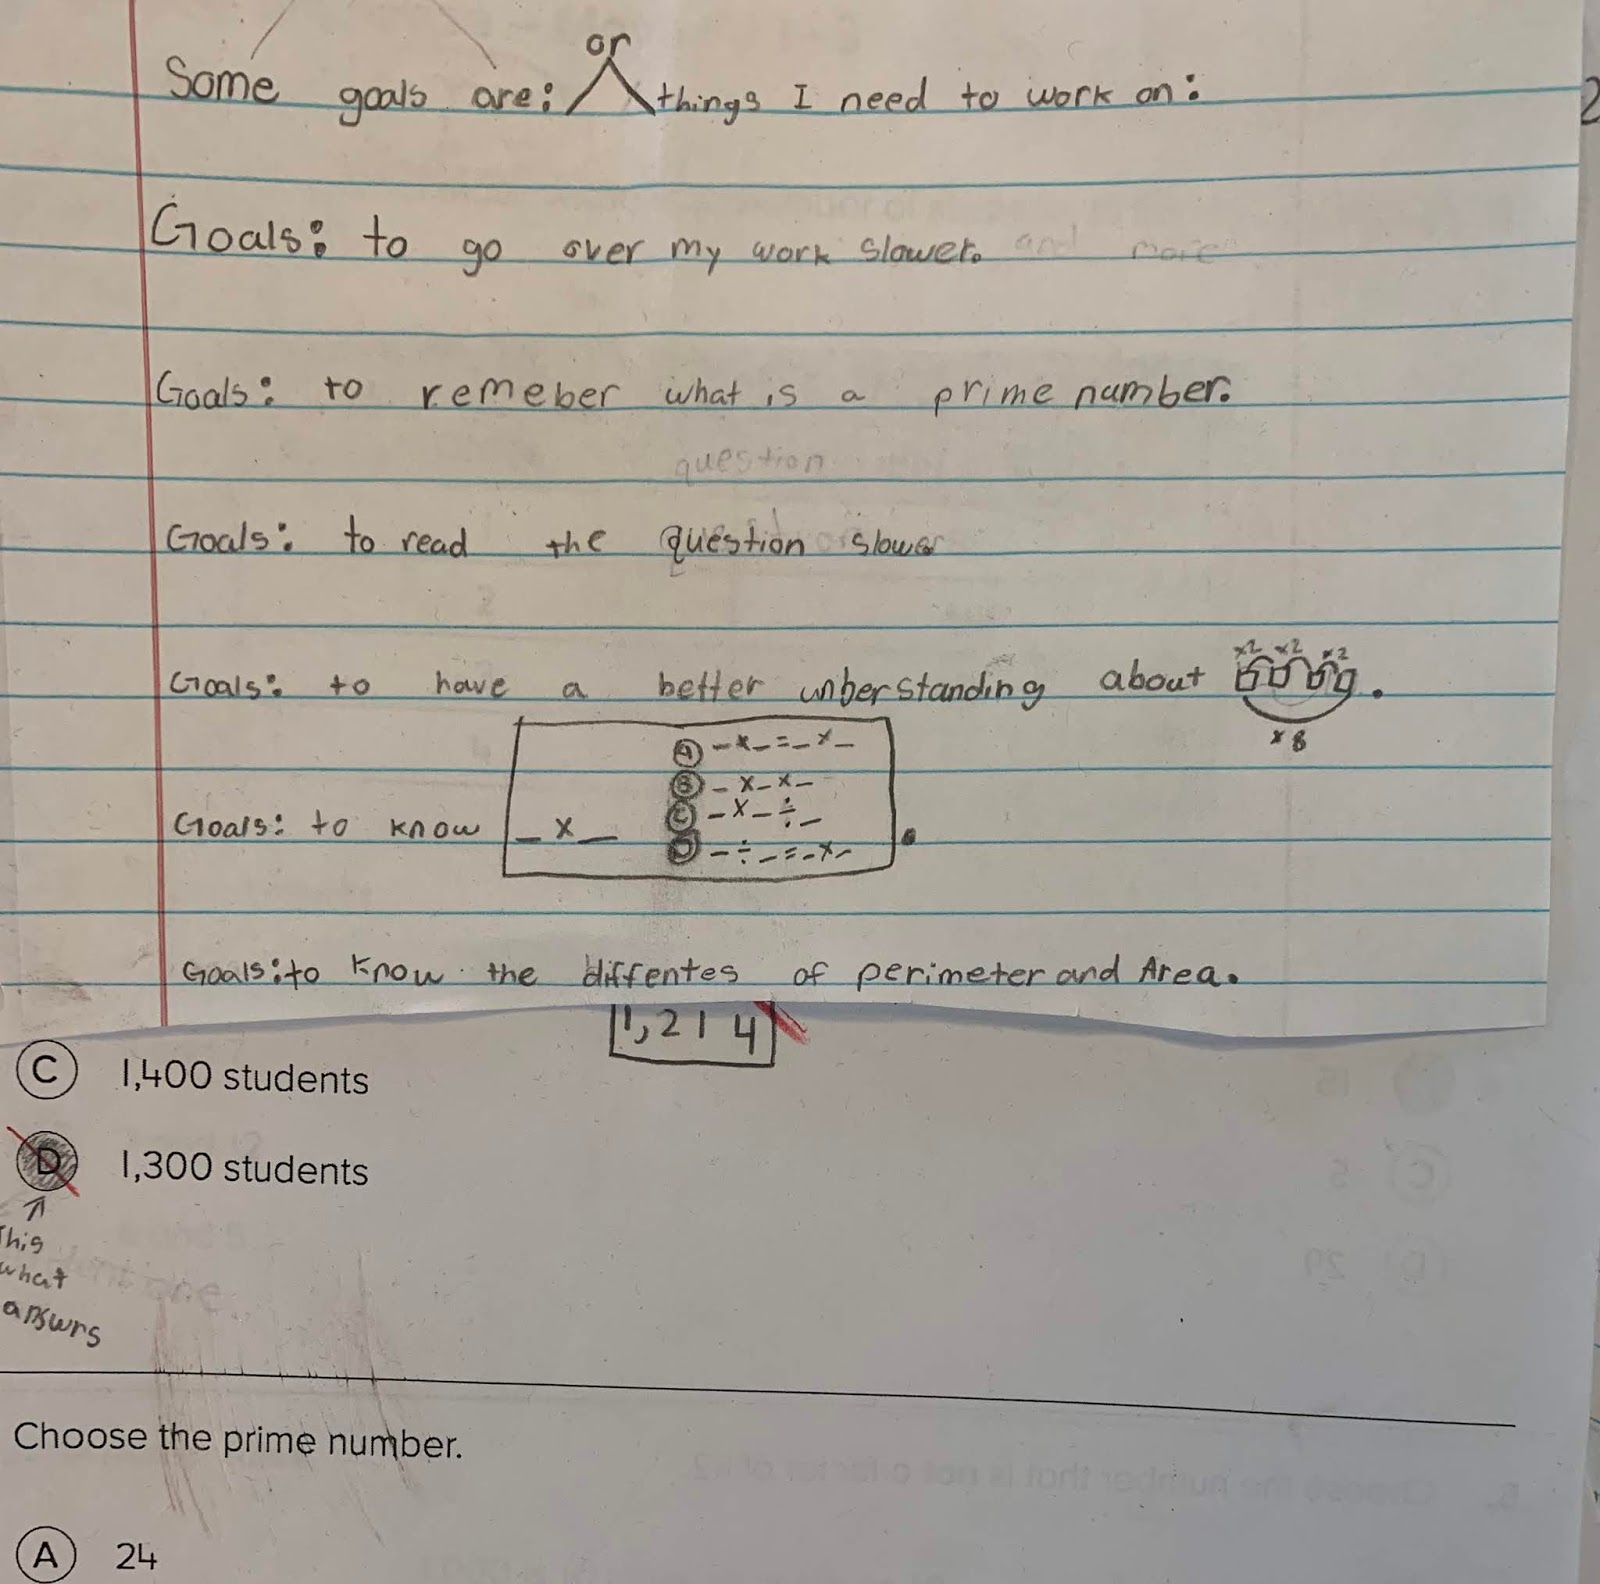 or
Some goals are: things I need to work on:
Goals: to go over my work slower. and more
Goals: to remeber what is a prime number.
question
Goals: to read the question slower
x2 x2 x2
Goals: to have a better unberstanding about .
x 8
A _x_=_x_
B _x_x_
C _x_÷_
Goals: to know _x_ .
D _÷_=_x_
Goals: to know the diffentes of perimeter and Area.
1,214
C 1,400 students
D 1,300 students
This
what
answrs
Choose the prime number.
A 24